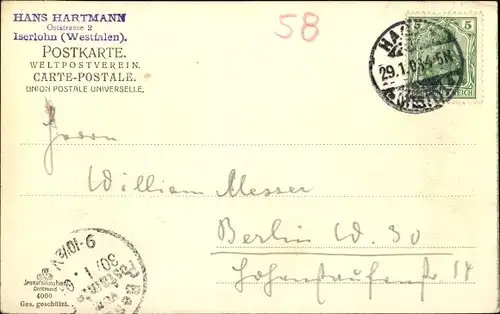 HANS HARTMANN
Oststrasse 2
Iserlohn (Westfalen).
58
POSTKARTE.
WELTPOSTVEREIN.
CARTE-POSTALE.
UNION POSTALE UNIVERSELLE.
5
29.1.
Herrn
William Messer
Berlin W. 30
Hohenstaufenstr 14
9-10½V
30/1.
Dortmund
4000
Ges. geschützt.